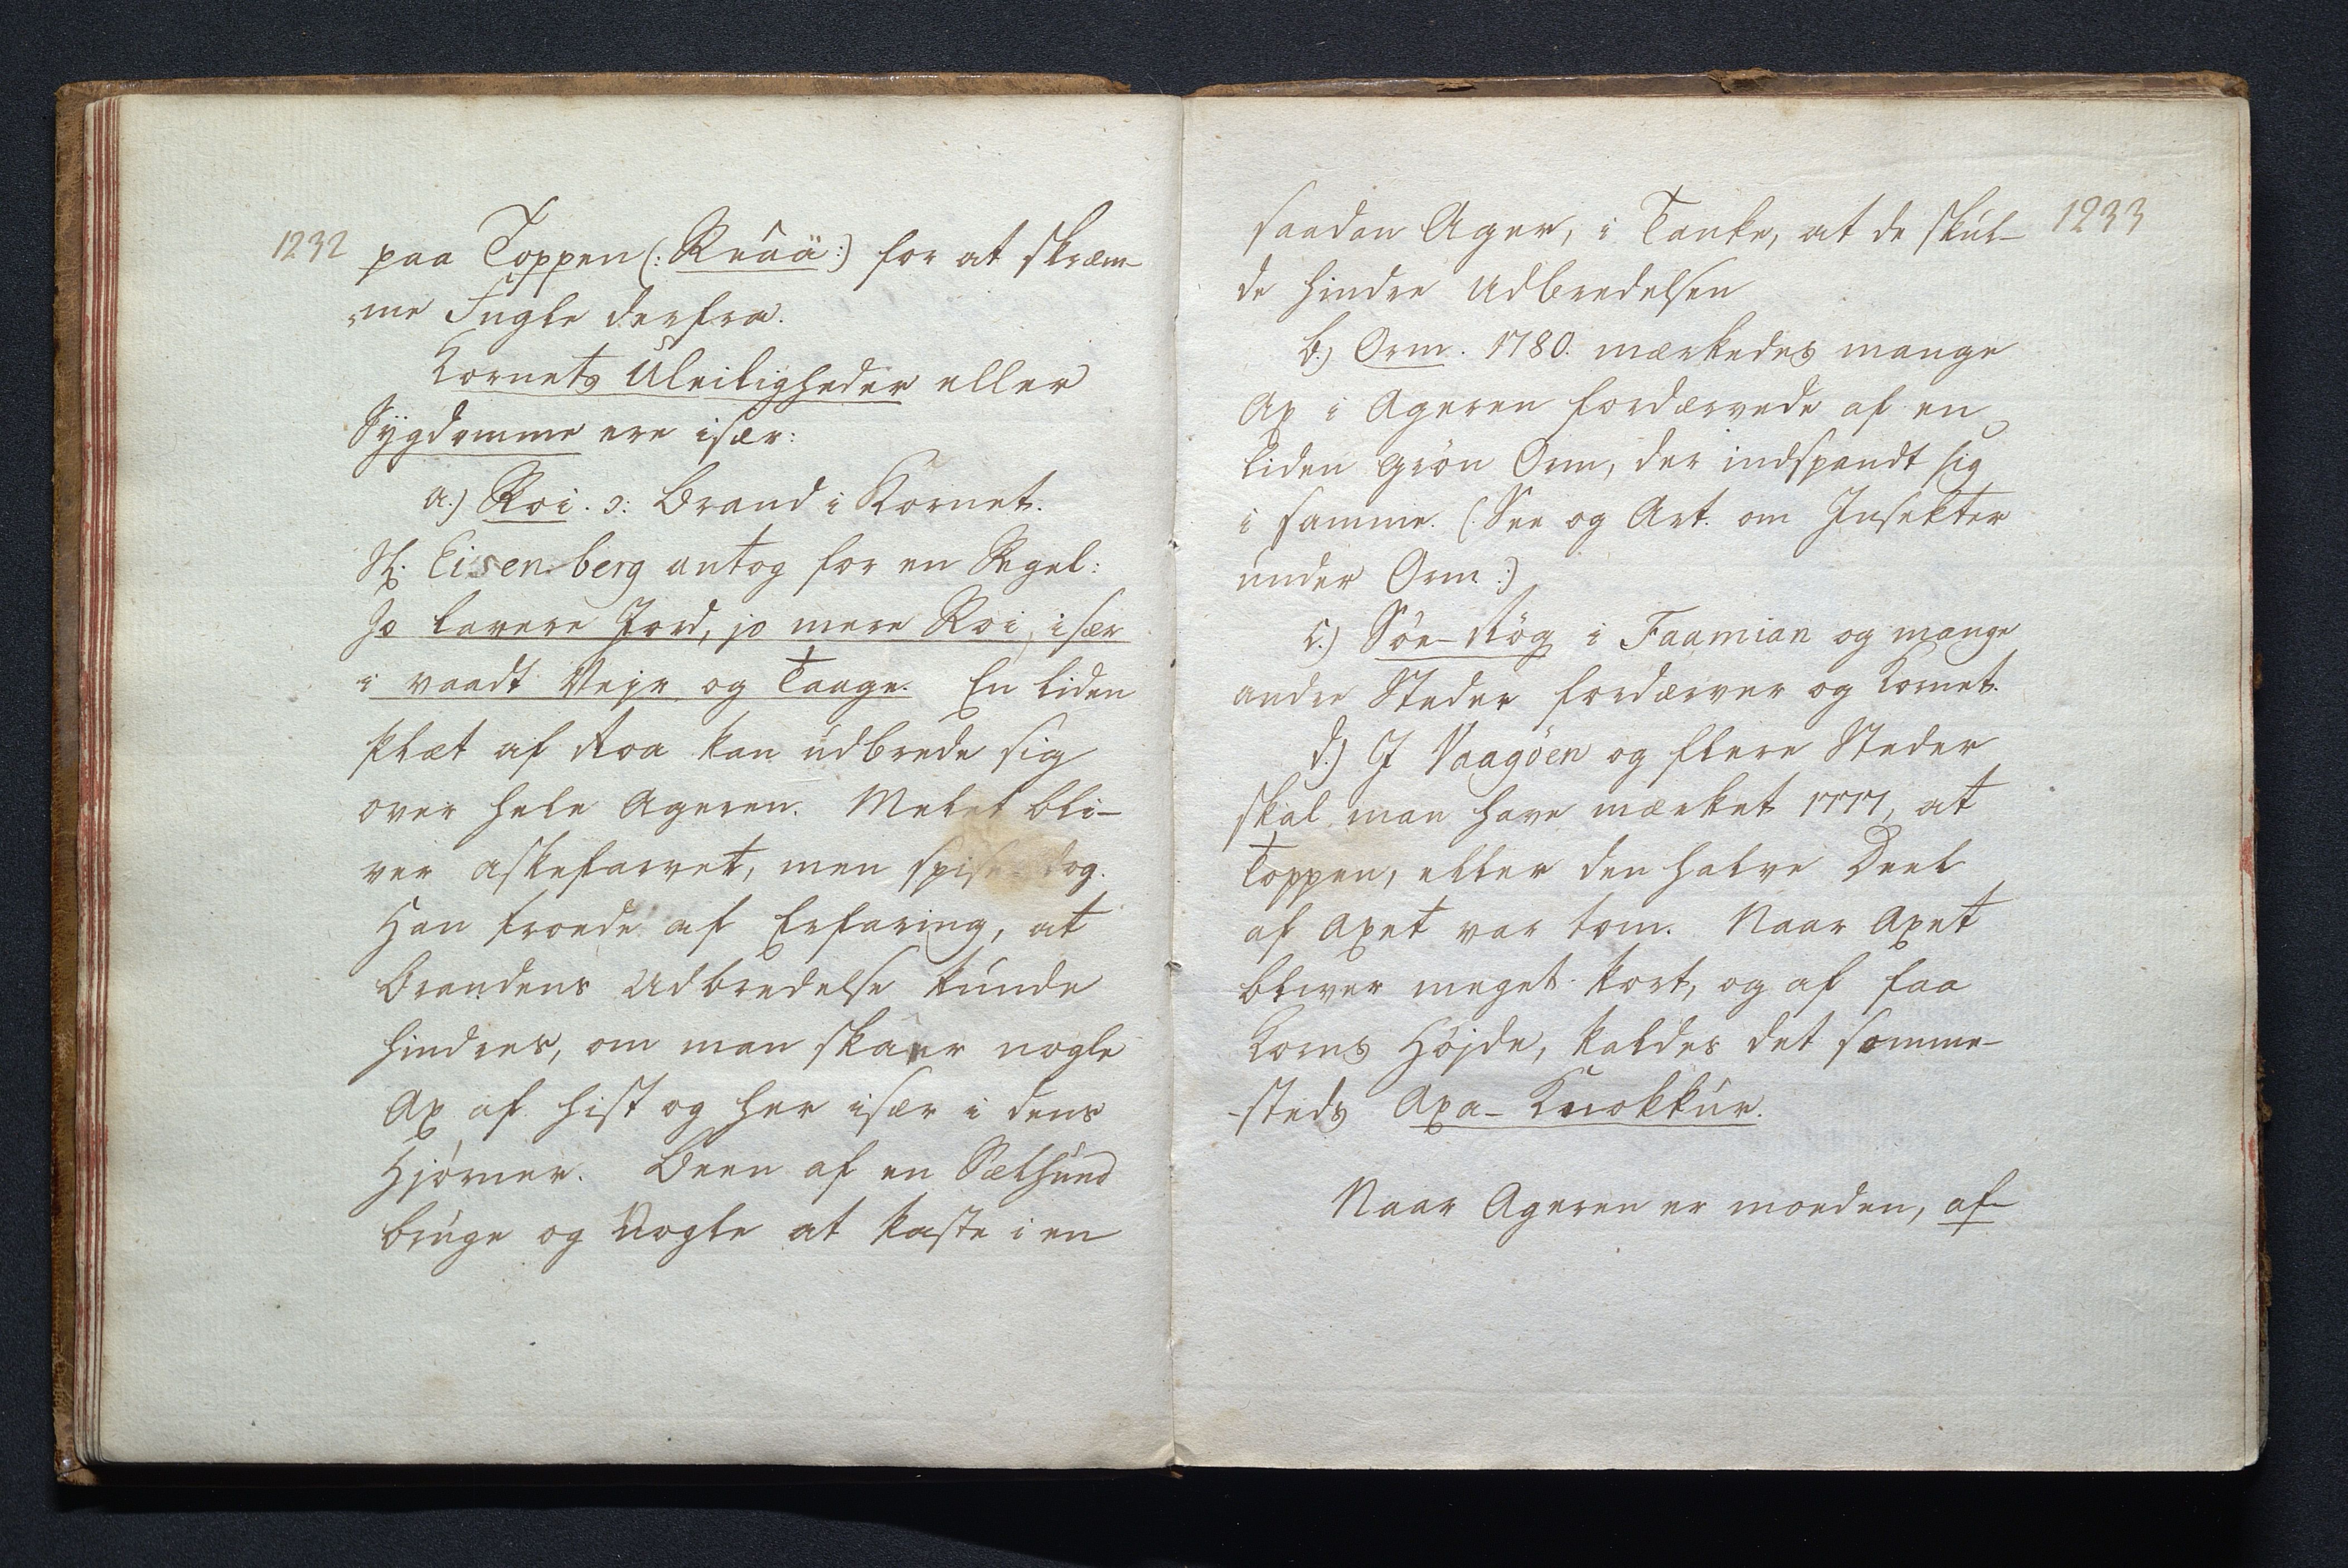 1232
paa Toppen (: Kraaä :) for at skræm-
me Fugle derfra.
Kornets Uleiligheder eller
Sygdomme ere især:
a.) Roi. ɔ: Brand i Kornet.
Hr. Eisenberg antog for en Regel:
Jo lavere Jord, jo mere Roi, især
i vaadt Vejr og Taage. En liden
Plæt af Roa kan udbrede sig
over hele Ageren. Melet bli-
ver askefarvet, men spises dog.
Han troede af Erfaring, at
Brandens Udbredelse kunde
hindres, om man skaer nogle
Ax af hist og her især i dens
Hjørner. Been af en Sælhund
bruge og Nogle at kaste i en
1233
saadan Ager, i Tanke, at de skul-
de hindre Udbredelsen
b.) Orm. 1780. mærkedes mange
Ax i Ageren fordærvede af en
liden grøn Orm, der indspandt sig
i samme. (: See og Art. om Insekter
under Orm. :)
c.) Söe-Rög i Faamian og mange
andre Steder fordærver og Kornet.
d.) I Vaagöen og flere Steder
skal man have mærket 1777, at
Toppen, eller den halve Deel
af Axet var tom. Naar Axet
bliver meget kort, og af faa
Korns Højde, kaldes det somme-
-steds Axa-Knokkur.
Naar Ageren er moeden, af-